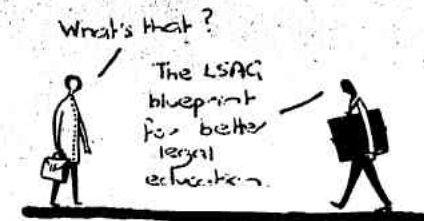 What's that?
The LSAG
blueprint
for better
legal
education.